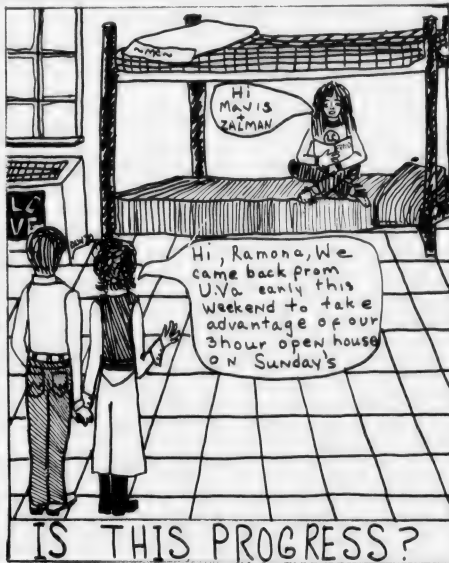 ~ME~
Hi
MAVIS
+
ZALMAN
LO
VE
Hi, Ramona, We
came back from
U.Va early this
weekend to take
advantage of our
3hour open house
ON Sunday's
IS THIS PROGRESS?